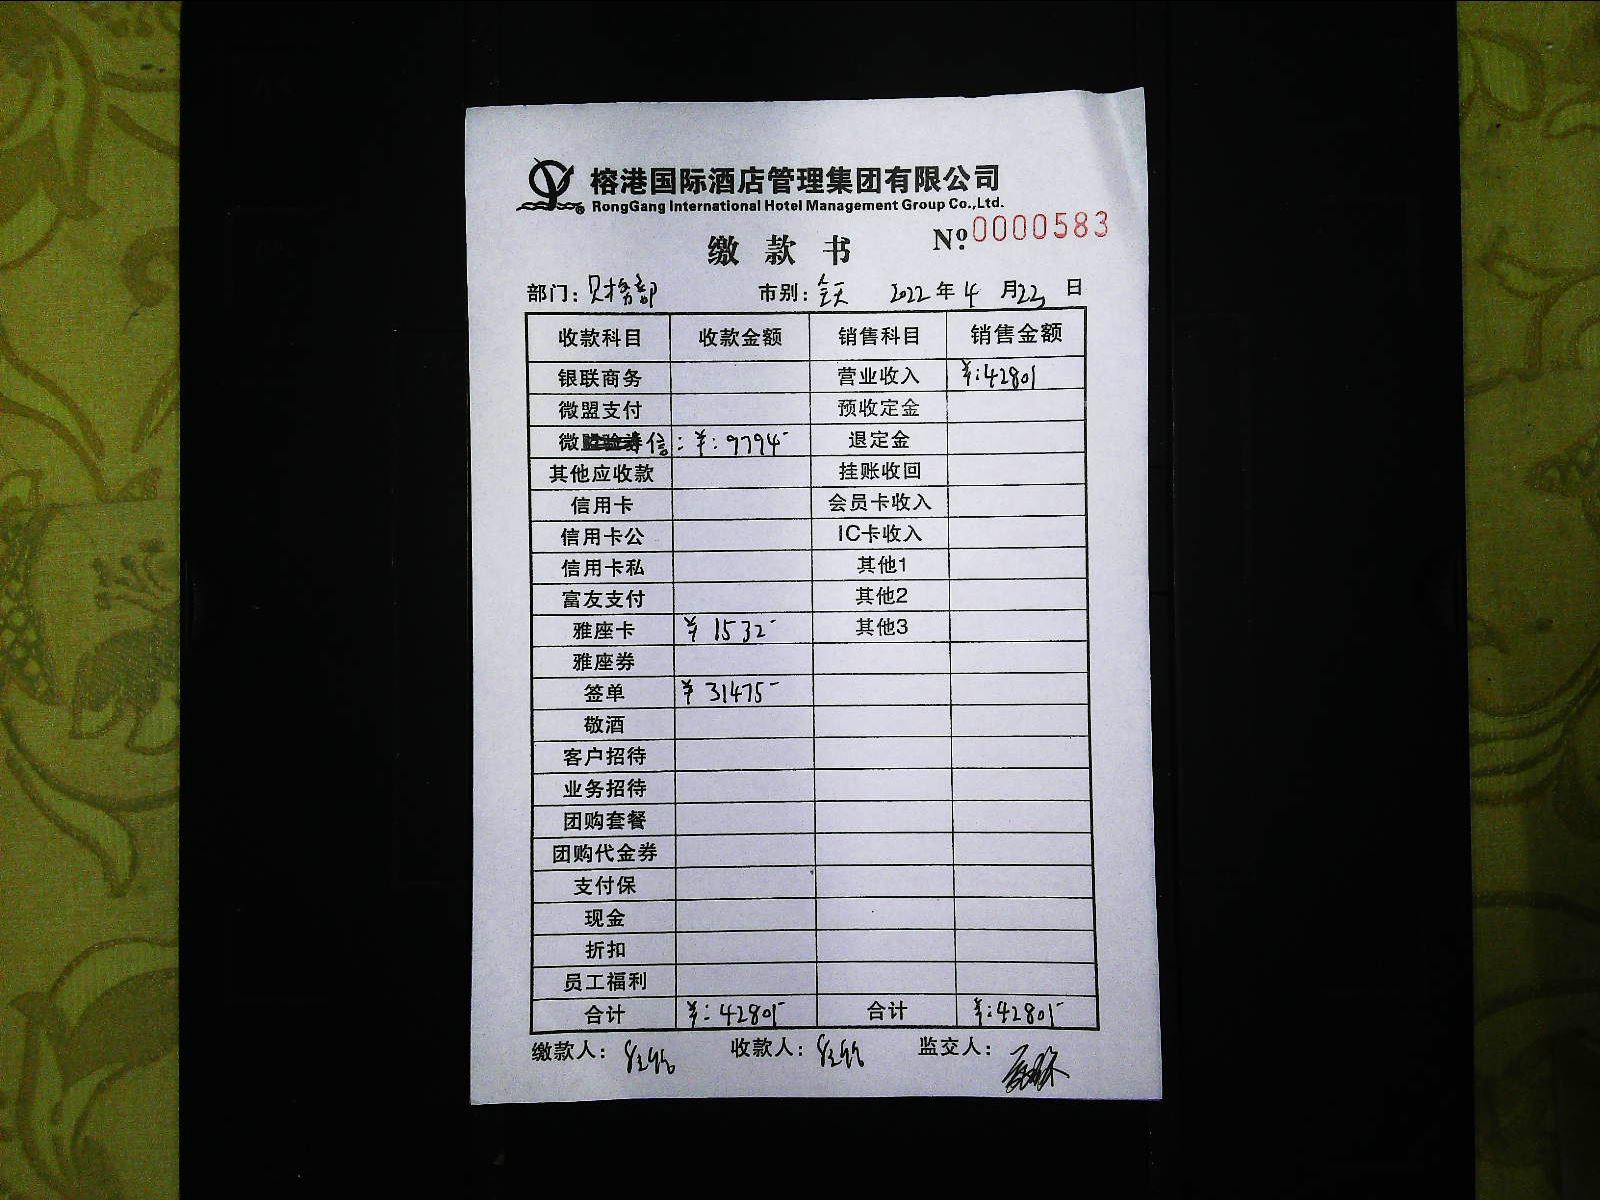 榕港国际酒店管理集团有限公司
RongGang International Hotel Management Group Co.,Ltd.
缴款书 №0000583
部门：财务部 市别：全天 2022年4月22日
收款科目 收款金额 销售科目 销售金额
银联商务 营业收入 ¥:42801
微盟支付 预收定金
微信：¥:9794- 退定金
其他应收款 挂账收回
信用卡 会员卡收入
信用卡公 IC卡收入
信用卡私 其他1
富友支付 其他2
雅座卡 ¥1532- 其他3
雅座券
签单 ¥31475-
敬酒
客户招待
业务招待
团购套餐
团购代金券
支付保
现金
折扣
员工福利
合计 ¥:42801- 合计 ¥:42801-
缴款人： 收款人： 监交人：